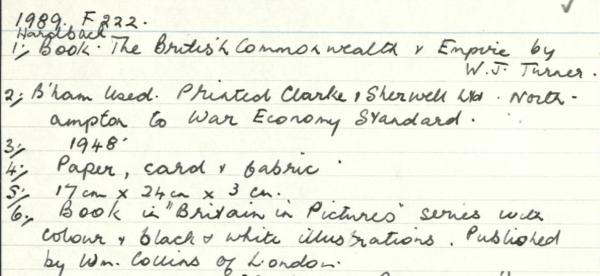 1989. F222.
Hardback
1; Book. The British Commonwealth & Empire by
W.J. Turner.
2; B'ham Used. Printed Clarke & Sherwell Ltd. North-
ampton to War Economy Standard.
3; 1948
4; Paper, card & fabric
5; 17cm x 24cm x 3cm.
6; Book in "Britain in Pictures" series with
colour & black & white illustrations. Published
by Wm. Collins of London.